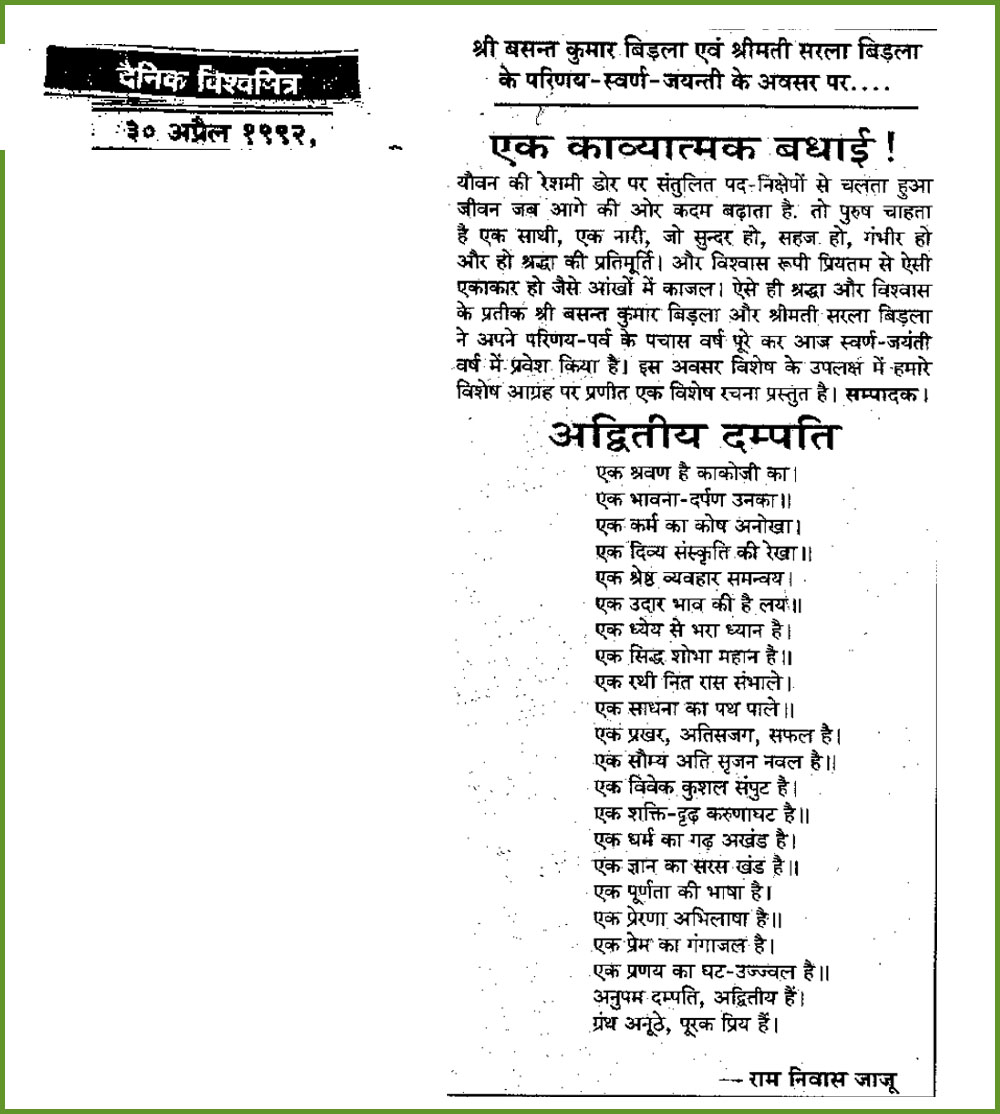 दैनिक विश्वमित्र
३० अप्रैल १९९२,
श्री बसन्त कुमार बिड़ला एवं श्रीमती सरला बिड़ला
के परिणय-स्वर्ण-जयन्ती के अवसर पर....
एक काव्यात्मक बधाई!
यौवन की रेशमी डोर पर संतुलित पद-निक्षेपों से चलता हुआ
जीवन जब आगे की ओर कदम बढ़ाता है. तो पुरुष चाहता
है एक साथी, एक नारी, जो सुन्दर हो, सहज हो, गंभीर हो
और हो श्रद्धा की प्रतिमूर्ति। और विश्वास रूपी प्रियतम से ऐसी
एकाकार हो जैसे आंखों में काजल। ऐसे ही श्रद्धा और विश्वास
के प्रतीक श्री बसन्त कुमार बिड़ला और श्रीमती सरला बिड़ला
ने अपने परिणय-पर्व के पचास वर्ष पूरे कर आज स्वर्ण-जयंती
वर्ष में प्रवेश किया है। इस अवसर विशेष के उपलक्ष में हमारे
विशेष आग्रह पर प्रणीत एक विशेष रचना प्रस्तुत है। सम्पादक।
अद्वितीय दम्पति
एक श्रवण है काकोजी का।
एक भावना-दर्पण उनका॥
एक कर्म का कोष अनोखा।
एक दिव्य संस्कृति की रेखा॥
एक श्रेष्ठ व्यवहार समन्वय।
एक उदार भाव की है लय॥
एक ध्येय से भरा ध्यान है।
एक सिद्ध शोभा महान है॥
एक रथी नित रास संभाले।
एक साधना का पथ पाले॥
एक प्रखर, अतिसजग, सफल है।
एक सौम्य अति सृजन नवल है॥
एक विवेक कुशल संपुट है।
एक शक्ति-दृढ़ करुणाघट है॥
एक धर्म का गढ़ अखंड है।
एक ज्ञान का सरस खंड है॥
एक पूर्णता की भाषा है।
एक प्रेरणा अभिलाषा है॥
एक प्रेम का गंगाजल है।
एक प्रणय का घट-उज्ज्वल है॥
अनुपम दम्पति, अद्वितीय हैं।
ग्रंथ अनूठे, पूरक प्रिय हैं।
—राम निवास जाजू